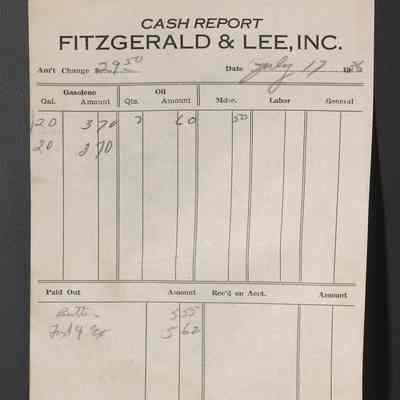 CASH REPORT
FITZGERALD & LEE, INC.
Am't Change $ 29.50 Date July 17 1936
Gasolene Oil
Gal. Amount Qts. Amount Mdse. Labor General
20 3 70 2 60 50
20 3 70
Paid Out Amount Rec'd on Acct. Amount
5 55
5 62